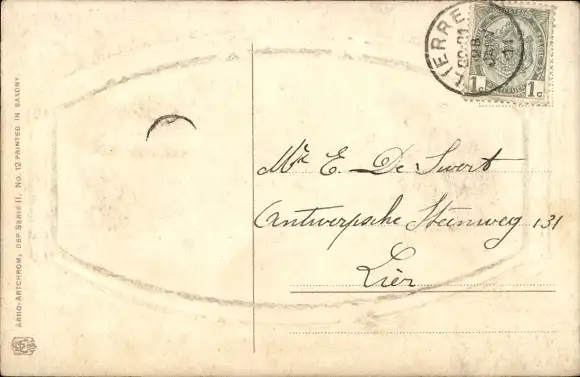 LIERRE
1 c 1 c
Mr E. De Swert
Antwerpsche Steenweg 131
Lier
ARNO-ARTCHROM, DEP. SERIE II, No. 12 PRINTED IN SAXONY